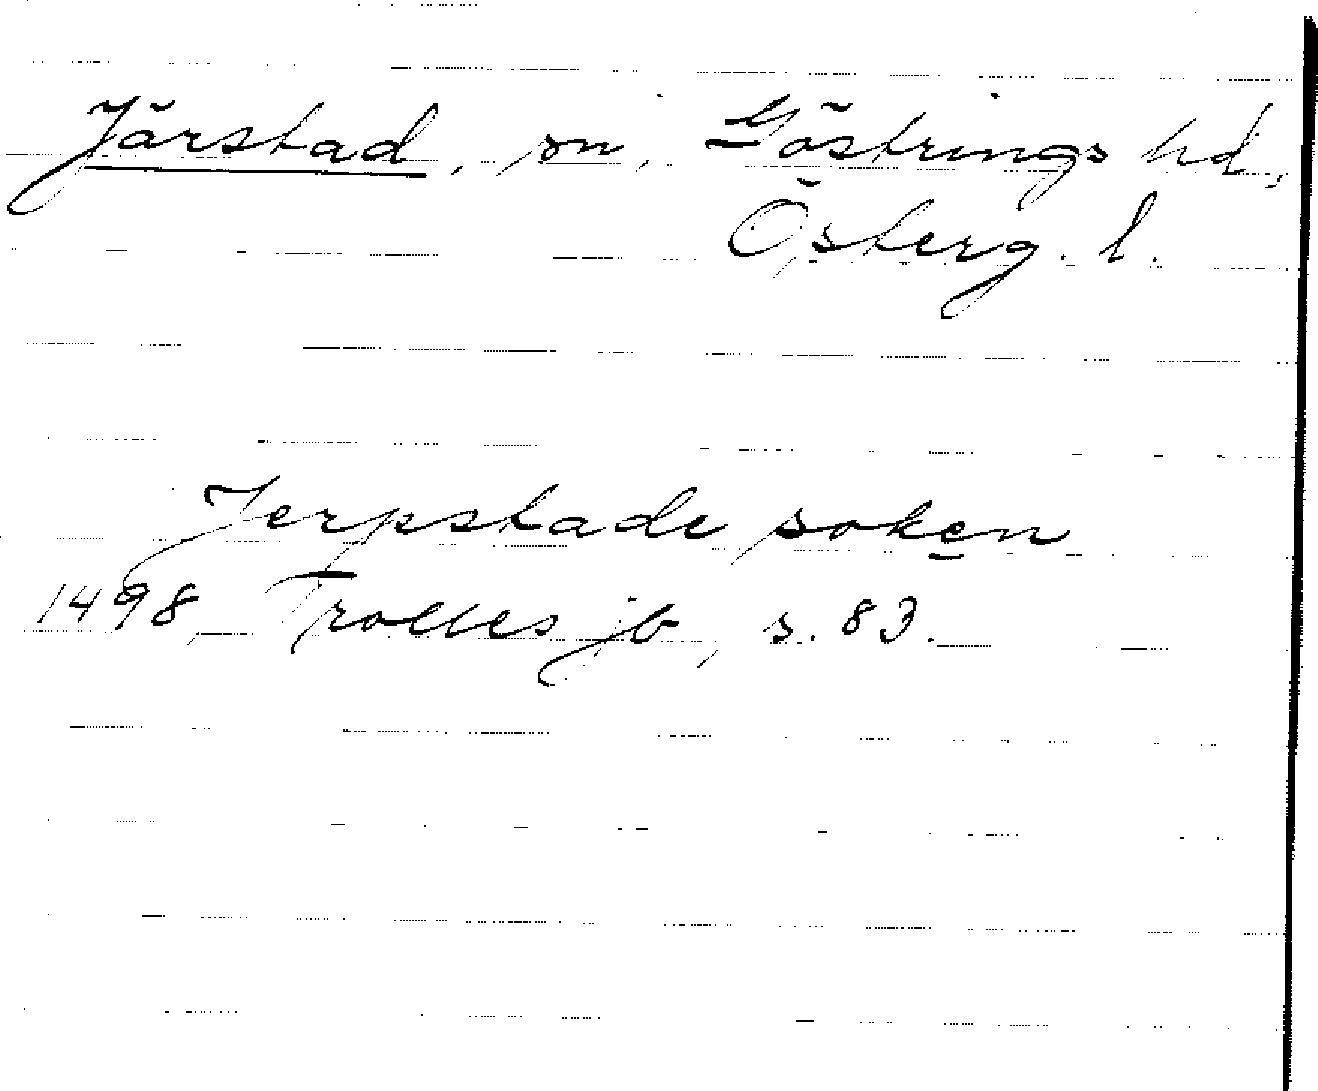 Järstad, sn, Göstrings hd,
Österg. l.
Jerpstade soken
1498 Trolles jb, s. 83.